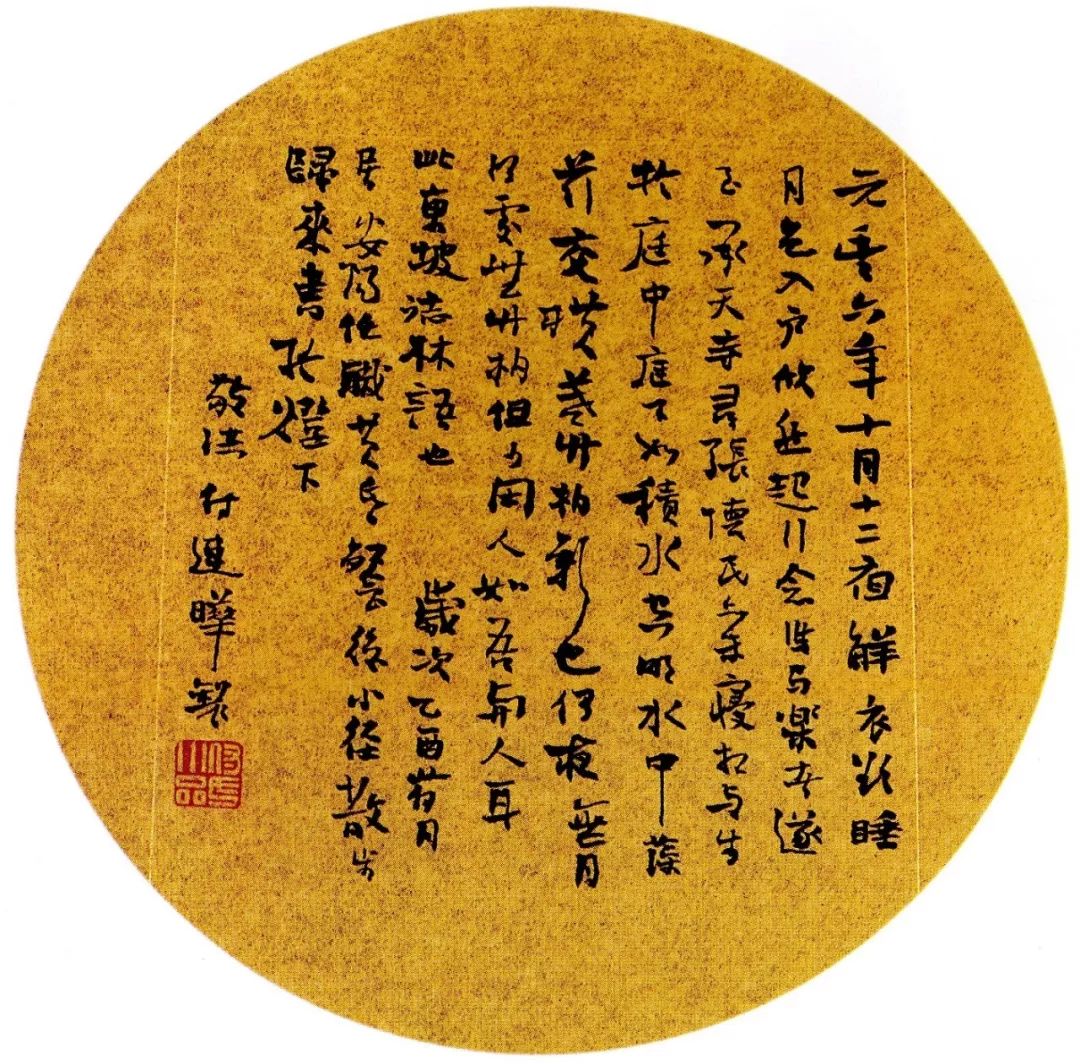 元豐六年十月十二夜解衣欲睡
月色入户欣然起行念無与樂者遂
至承天寺尋張懷民亦未寢相与步
於庭中庭下如積水空明水中藻
荇交橫蓋竹柏影也何夜無月
何處無竹柏但少閑人如吾兩人耳
此東坡誌林語也 歲次乙酉荷月
居安陽任職後小徑散步
歸來書於燈下
付連曄